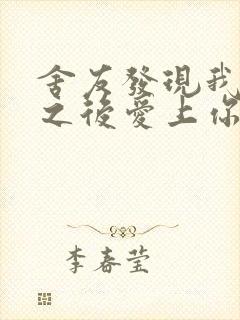 舍友發現我
之後愛上你
李春莹